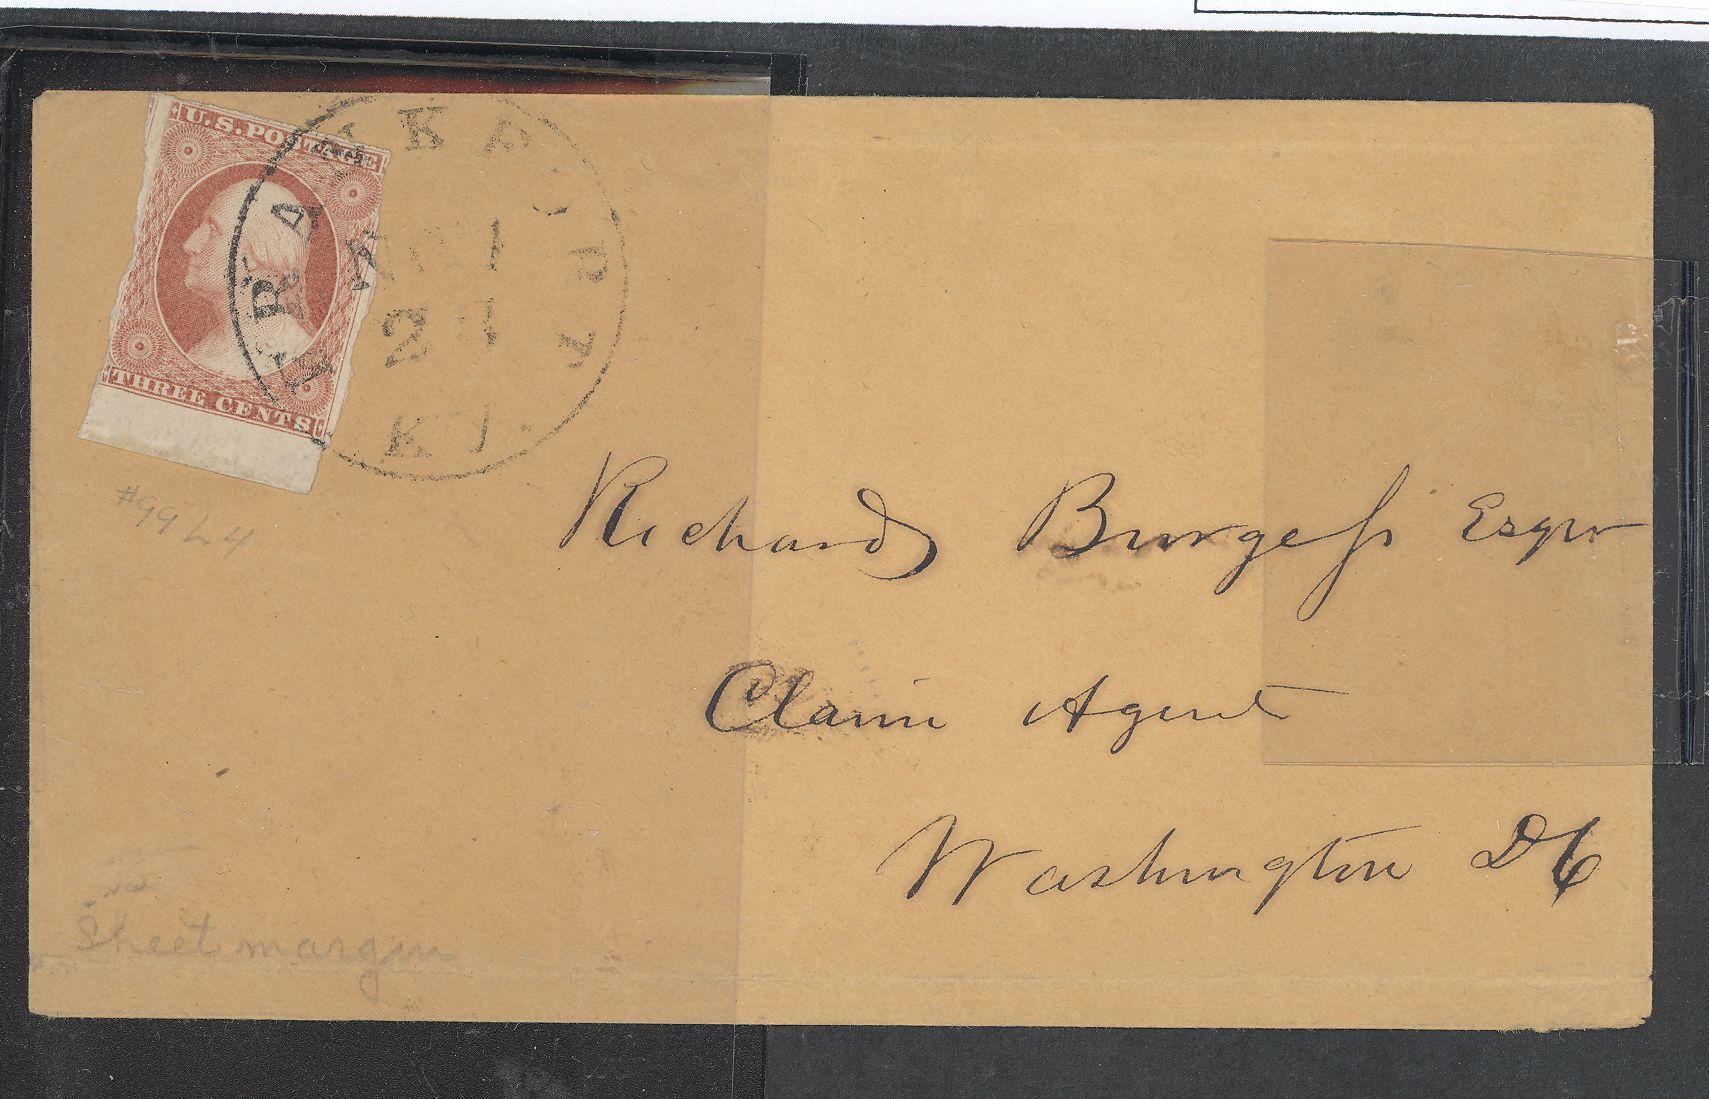 U.S. POSTAGE
THREE CENTS
FRANKFORT
21
KY.
#99L4
Richard Burgess Esqr
Claim Agent
Washington DC
Sheet margin